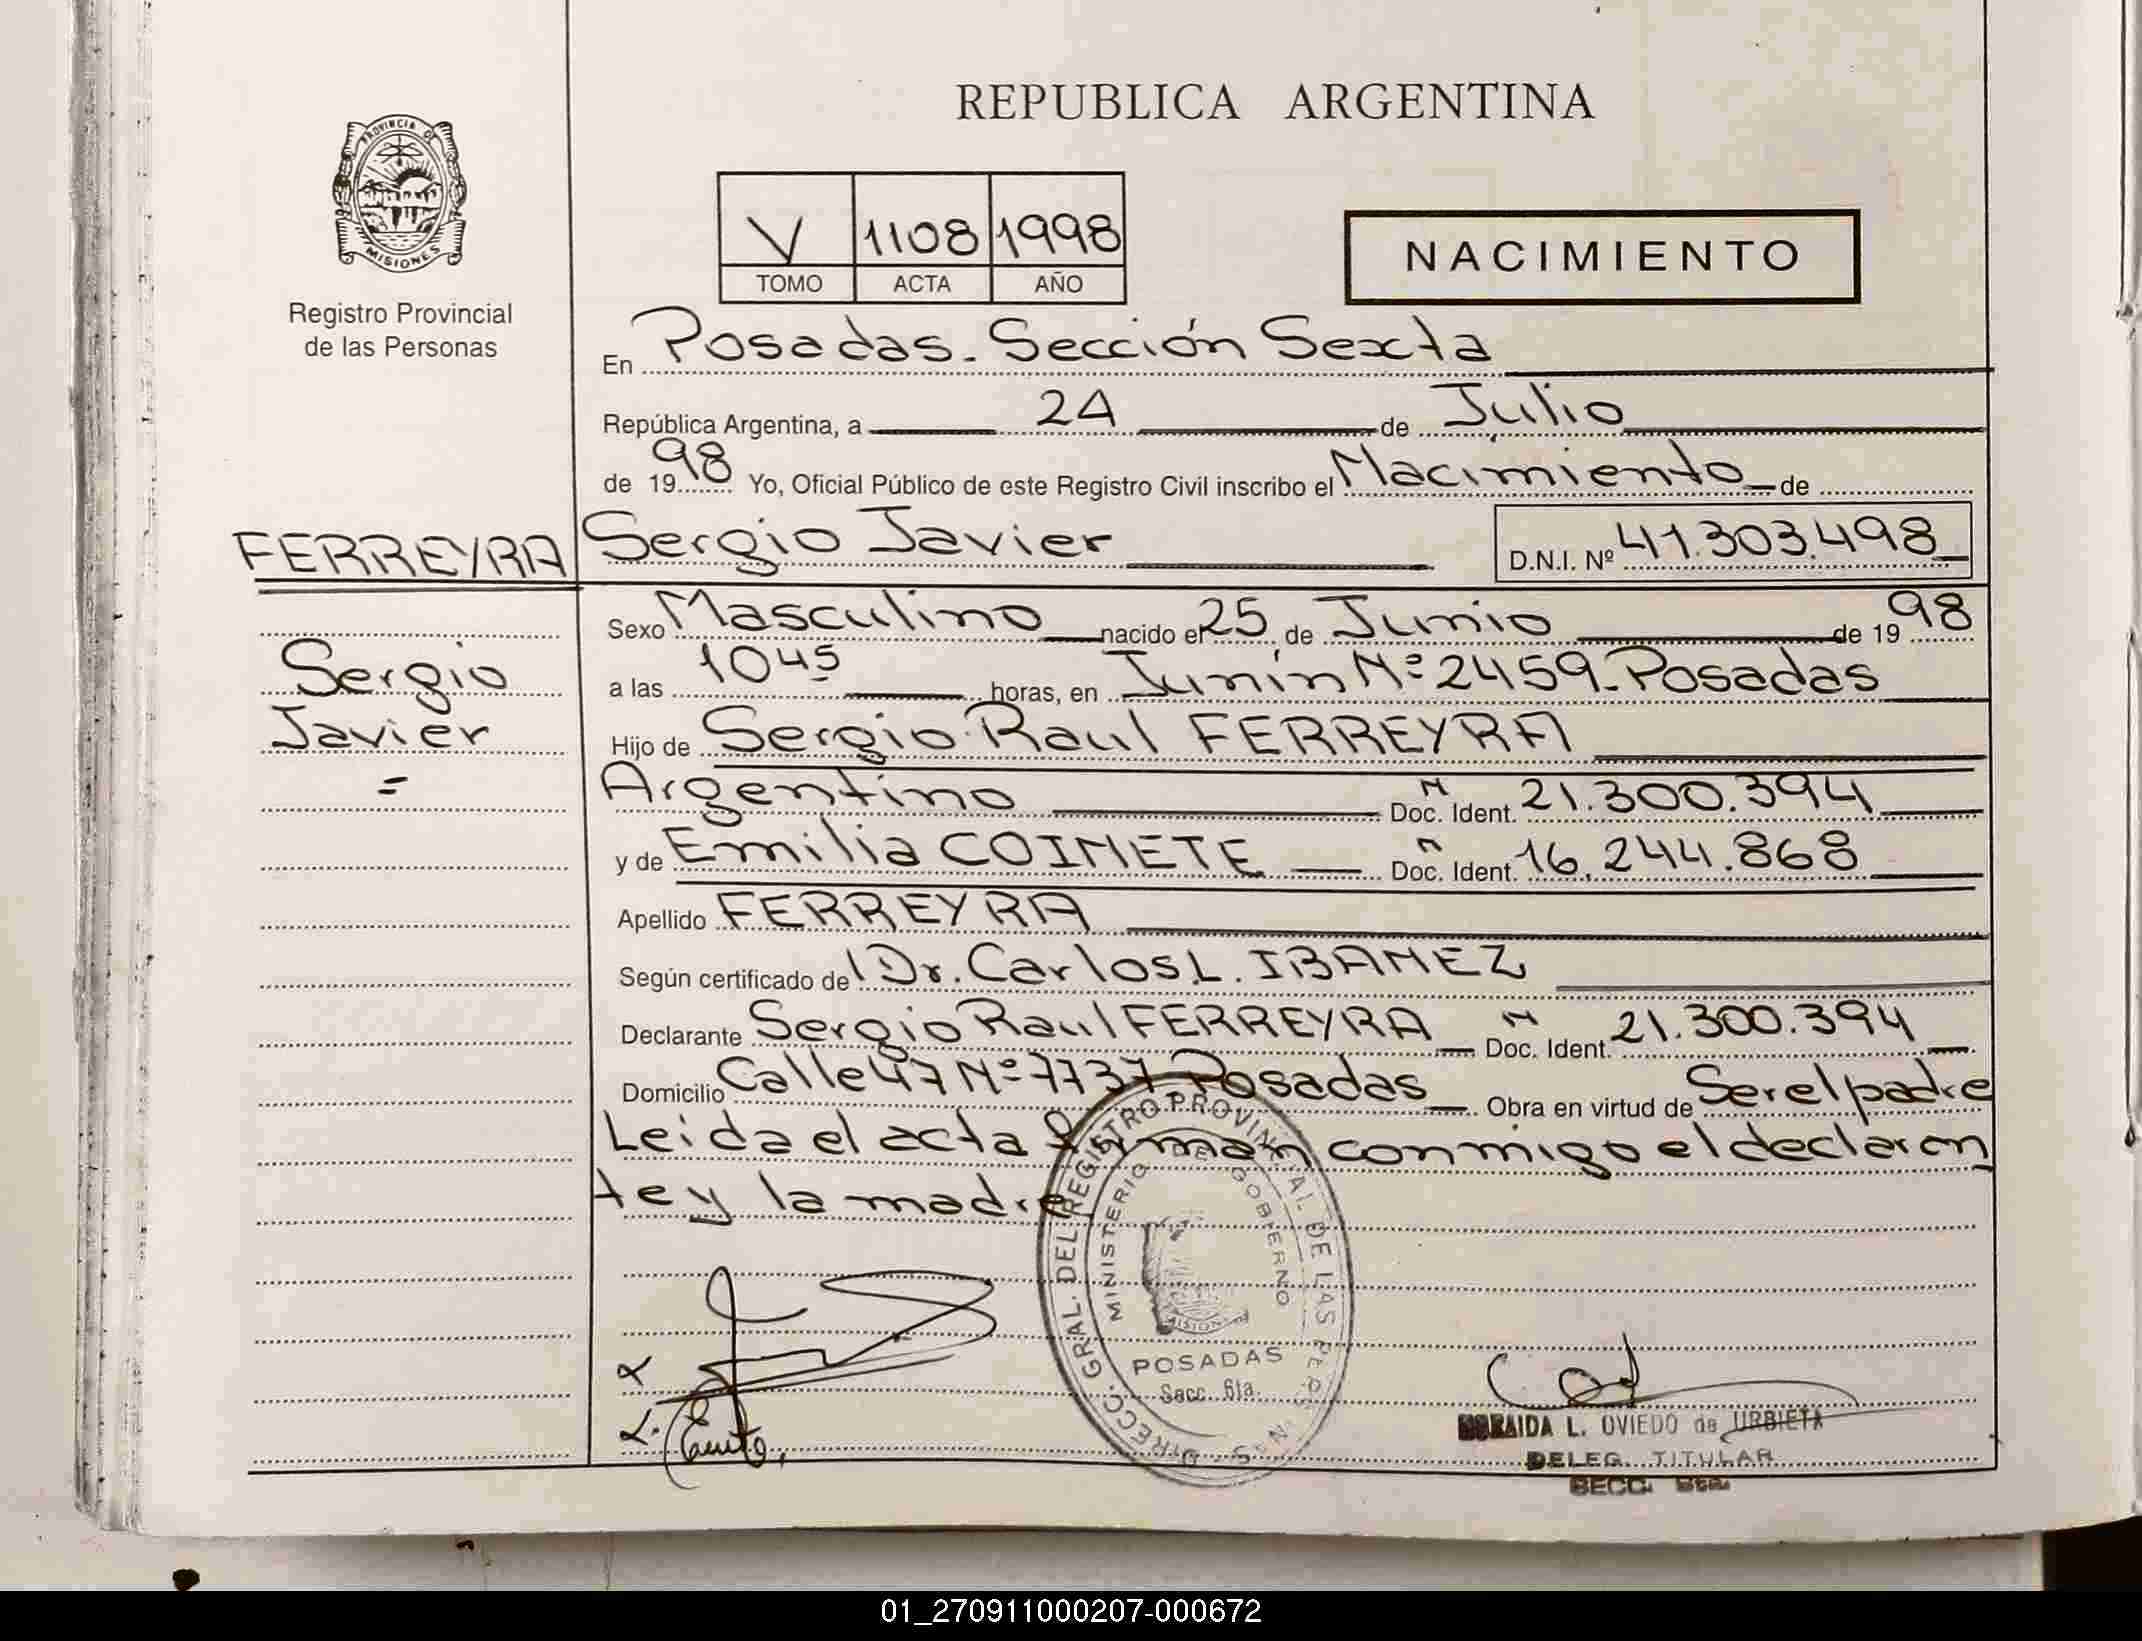 REPUBLICA ARGENTINA
PROVINCIA DE
MISIONES
Registro Provincial
de las Personas
V 1108 1998
TOMO ACTA AÑO
NACIMIENTO
En Posadas. Sección Sexta
República Argentina, a 24 de Julio
de 1998 Yo, Oficial Público de este Registro Civil inscribo el Nacimiento de
FERREYRA Sergio Javier D.N.I. Nº 41.303.498
Sexo Masculino nacido el 25 de Junio de 1998
Sergio
a las 1045 horas, en Junín Nº 2459 - Posadas
Javier
Hijo de Sergio Raul FERREYRA
=
Argentino Doc. Ident. N 21.300.394
y de Emilia Doc. Ident. N 16.244.868
Apellido FERREYRA
Según certificado de Dr. Carlos L. IBANEZ
Declarante Sergio Raul FERREYRA Doc. Ident. N 21.300.394
Domicilio Calle 47 Nº 7737 Posadas Obra en virtud de Ser el padre
Leida el acta firman conmigo el declaran
te y la madre
DIRECC. GRAL. DEL REGISTRO PROVINCIAL DE LAS PERSONAS
MINISTERIO DE GOBIERNO
MISIONES
POSADAS
Secc. 6ta.
L. OVIEDO de URBIETA
DELEG. TITULAR
SECC. 6ta.
01_270911000207-000672